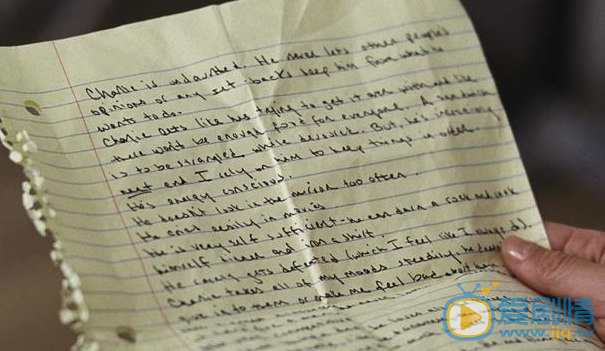 Charlie is undaunted. He never lets other people's
opinions or any set-backs keep him from what he
wants to do.
Charlie eats like he's trying to get it over with and like
there won't be enough food for everyone. A sandwich
is to be strangled while devoured. But, he's incredibly
neat and I rely on him to keep things in order.
He's energy conscious.
He doesn't look in the mirror too often.
He cries easily in movies
He is very self sufficient - he can darn a sock and cook
himself dinner and iron a shirt.
He rarely gets defeated (which I feel like I always do).
Charlie takes all of my moods steadily he doesn't
give in to them or make me feel bad about
爱剧情
www.ijq.tv